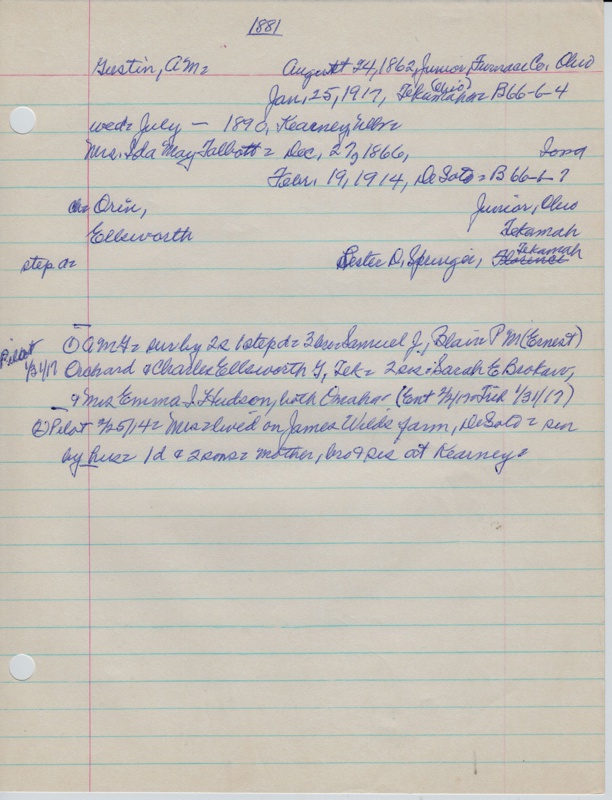 1881
Gustin, A M= August 24, 1862, Junior, Furnace Co, Ohio
(Ohio)
Jan, 25, 1917, Tekamah= B66-6-4
wed= July — 1890, Kearney, Nebr=
Mrs. Ida May Talbott= Dec, 27, 1866, Iowa
Febr. 19, 1914, DeSoto= B 66-6-7
ch= Orin, Junior, Ohio
Ellsworth Tekamah
step d= Lester D. Springer, Florence Tekamah
Pilot ① A M G= sur by 2s 1 step d= 3 bro= Samuel J., Blair P M (Ernest)
1/31/17 Orchard & Charlie Ellsworth G, Tek= 2 sis= Sarah E Brokaw,
& Mrs Emma I. Hudson, both Omaha= (Ent 2/1/17 Trib 1/31/17)
② Pilot 2/25/14= Mrs= lived on James Wilds farm, DeSoto= sur
by hus= 1d & 2 sons= mother, bro & sis at Kearney=